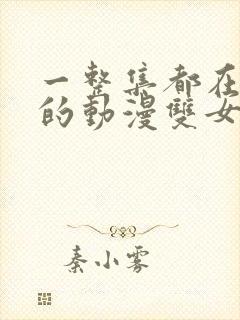 一整集都在
的動漫雙女
秦小雾